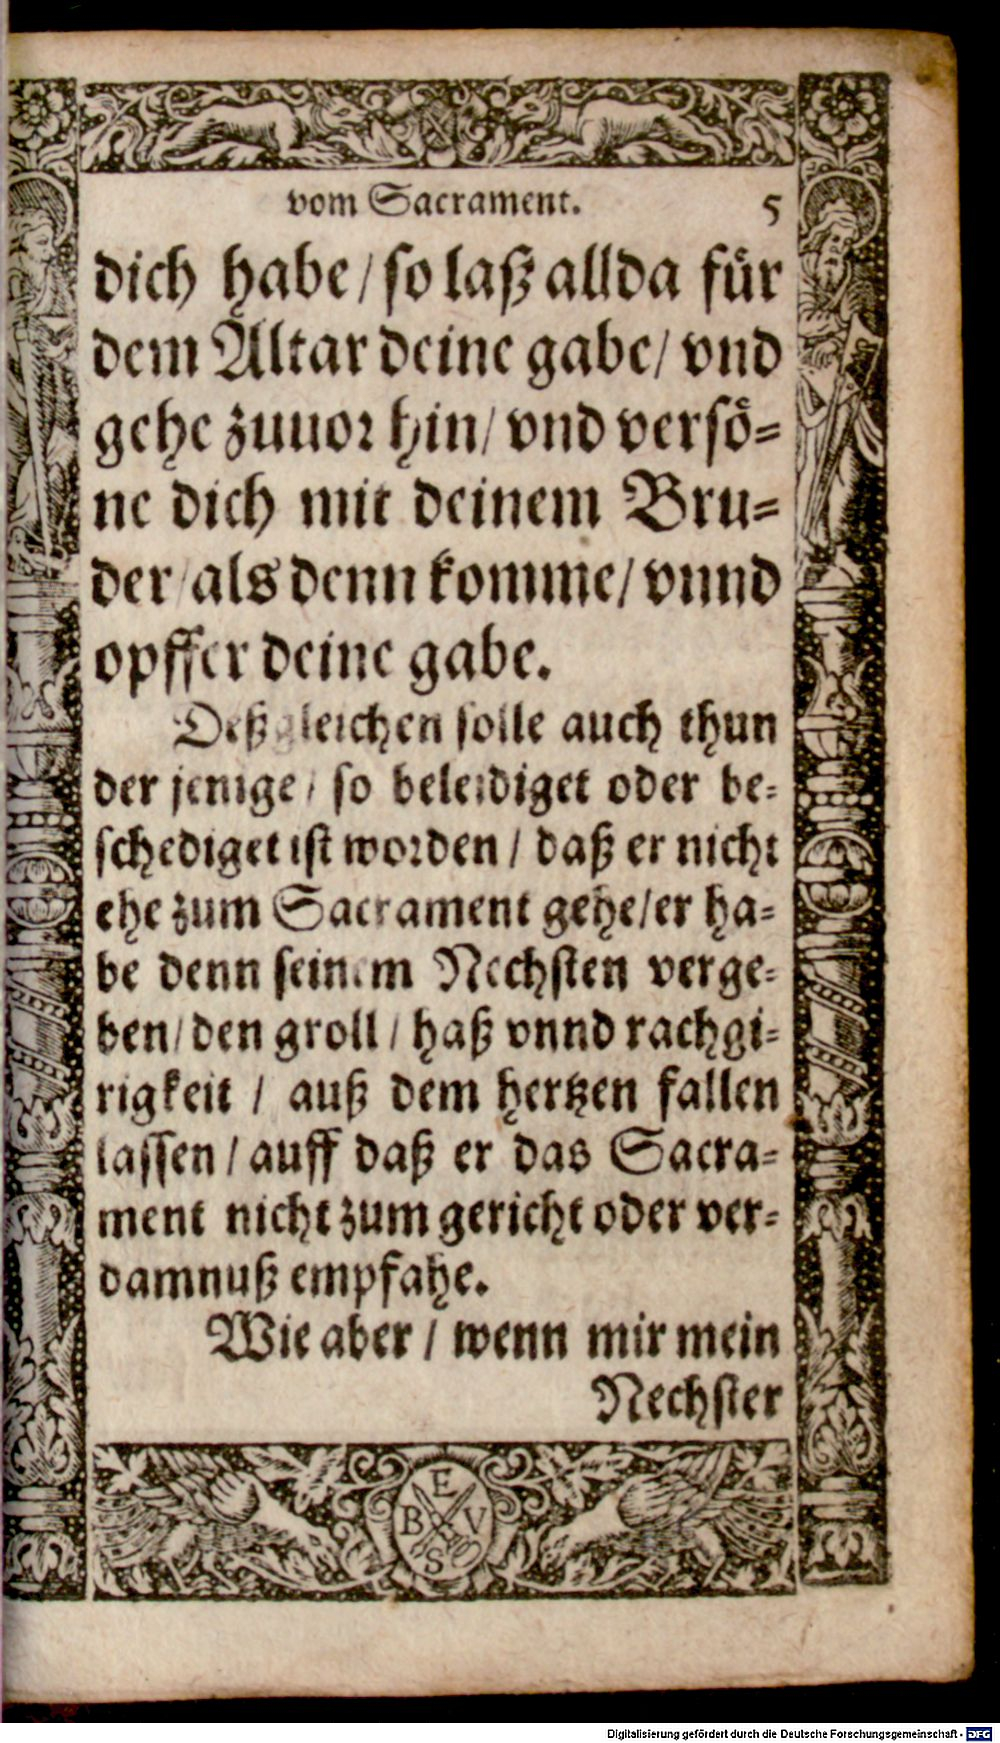 vom Sacrament. 5
dich habe / so laß allda für
dem Altar deine gabe / vnd
gehe zuuor hin / vnd versö-
ne dich mit deinem Bru-
der / als denn komme / vnnd
opffer deine gabe.
Deßgleichen solle auch thun
der jenige / so beleidiget oder be-
schediget ist worden / daß er nicht
ehe zum Sacrament gehe / er ha-
be denn seinem Nechsten verge-
ben / den groll / haß vnnd rachgi-
rigkeit / auß dem hertzen fallen
lassen / auff daß er das Sacra-
ment nicht zum gericht oder ver-
damnuß empfahe.
Wie aber / wenn mir mein
Nechster
E
B V
S
Digitalisierung gefördert durch die Deutsche Forschungsgemeinschaft - DFG